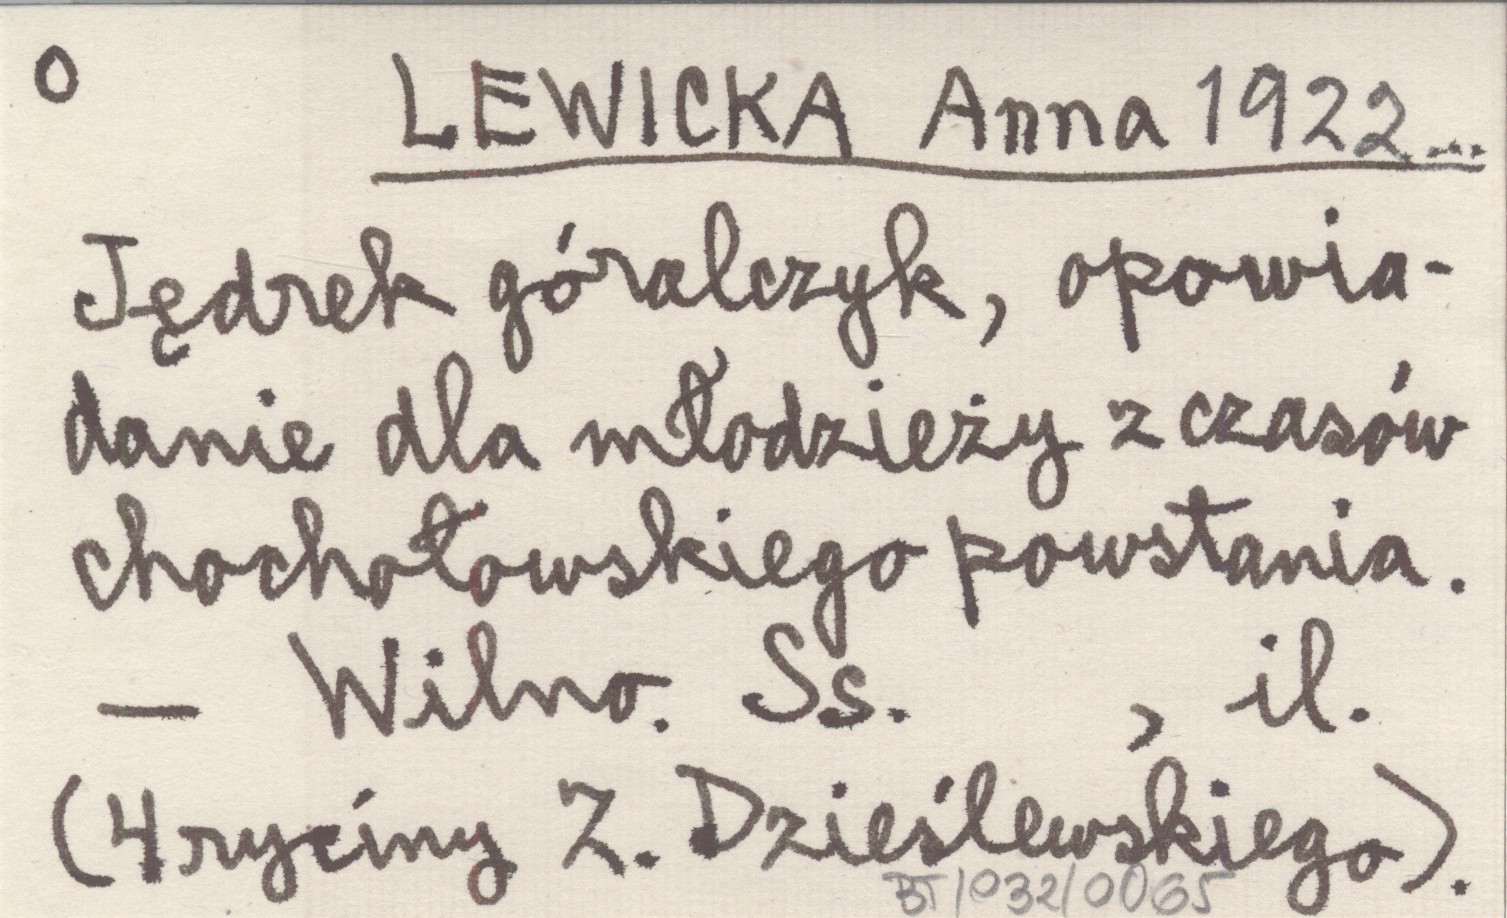 O LEWICKA Anna 1922...
Jędrek góralczyk, opowia-
danie dla młodzieży z czasów
chochołowskiego powstania.
— Wilno. Ss. , il.
(4 ryciny Z. Dzieślewskiego).
BT/032/0065